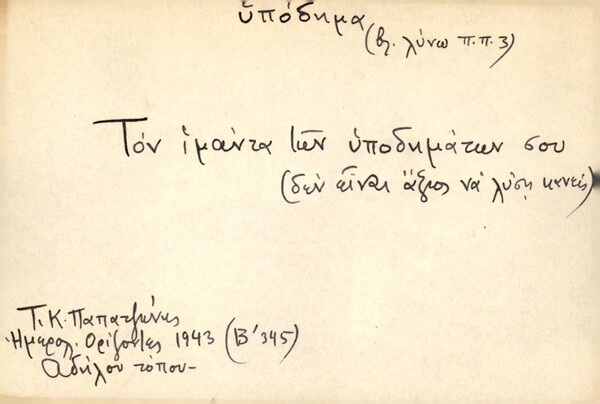 ὑπόδημα
(βλ. λύνω π.π. 3)
Τόν ἱμάντα τῶν ὑποδημάτων σου
(δέν εἶναι ἄξιος νά λύσῃ κανείς)
Τ. Κ. Παπατζώνης
Ἡμερολ. Ὁρίζοντες 1943 (Β' 345)
Ἀδήλου τόπου-